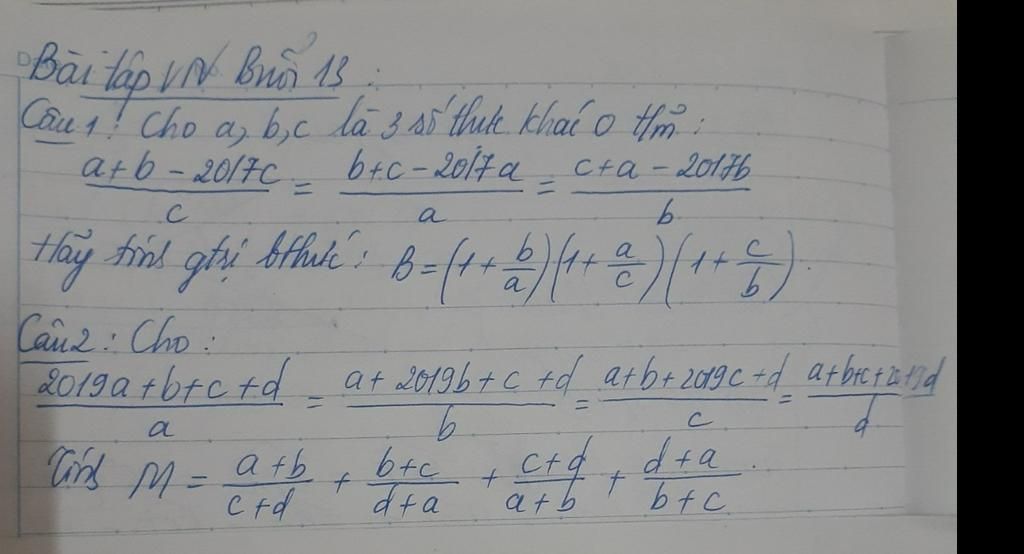 Bài tập VN Buổi 13 :
Câu 1 : Cho a, b, c là 3 số thực khác 0 t/m :
(a+b - 2017c)/c = (b+c - 2017a)/a = (c+a - 2017b)/b
Hãy tính gtrị bthức : B = (1 + b/a)(1 + a/c)(1 + c/b).
Câu 2 : Cho :
(2019a+b+c+d)/a = (a+2019b+c+d)/b = (a+b+2019c+d)/c = (a+b+c+2019d)/d
Tính M = (a+b)/(c+d) + (b+c)/(d+a) + (c+d)/(a+b) + (d+a)/(b+c).